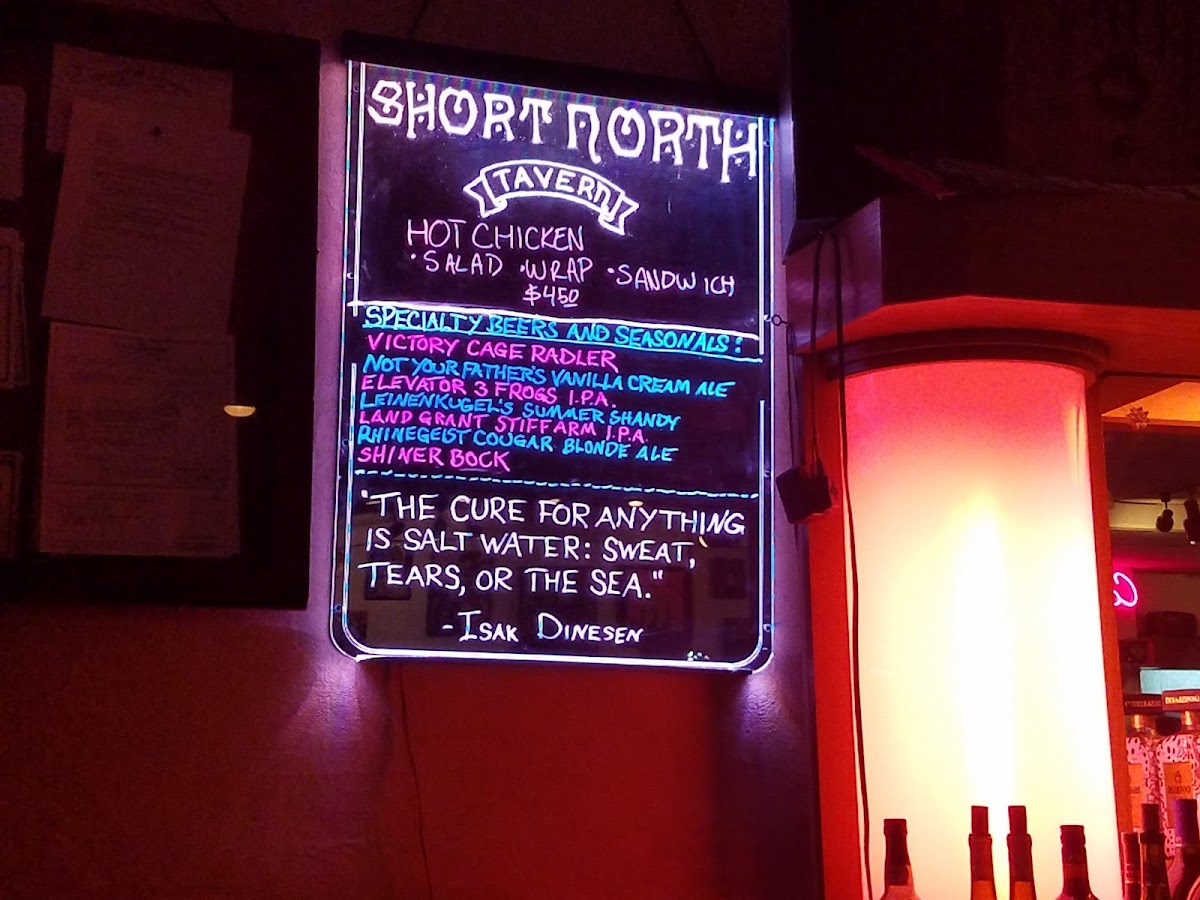 SHORT NORTH
TAVERN
HOT CHICKEN
• SALAD • WRAP • SANDWICH
$4.50
SPECIALTY BEERS AND SEASONALS:
VICTORY CAGE RADLER
NOT YOUR FATHER'S VANILLA CREAM ALE
ELEVATOR 3 FROGS I.P.A.
LEINENKUGEL'S SUMMER SHANDY
LAND GRANT STIFF ARM I.P.A.
RHINEGEIST COUGAR BLONDE ALE
SHINER BOCK
"THE CURE FOR ANYTHING
IS SALT WATER: SWEAT,
TEARS, OR THE SEA."
- ISAK DINESEN